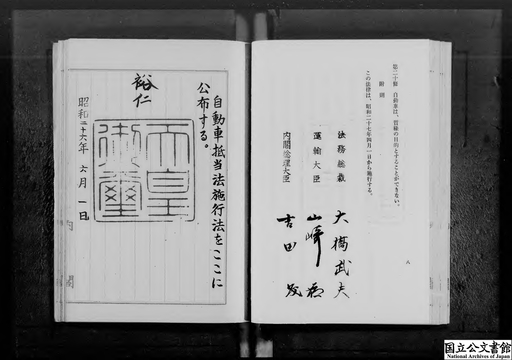 第二十條　自動車は、質權の目的とすることができない。
附則
この法律は、昭和二十七年四月一日から施行する。
法務総裁　大橋武夫
運輸大臣　山崎猛
内閣総理大臣　吉田茂
八
自動車抵当法施行法をここに
公布する。
裕仁
天皇
御璽
昭和二十六年　六月　一日
内閣
国立公文書館
National Archives of Japan